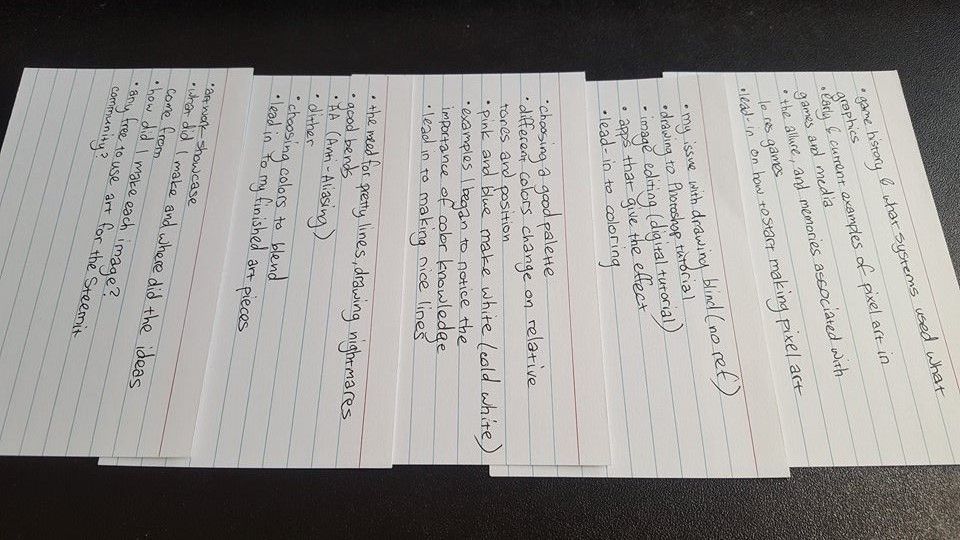 • game history & what systems used what
graphics
• early & current examples of pixel art in
games and media
• the allure, and memories associated with
lo res games
• lead-in on how to start making pixel art
• my issue with drawing blind (no ref)
• drawing to Photoshop tutorial
• image editing (digital tutorial)
• apps that give the effect
• lead-in to coloring
• choosing a good palette
• different colors change on relative
tones and position
• pink and blue make white (cold white)
• examples I began to notice the
importance of color knowledge
• lead in to making nice lines
• the need for pretty lines, drawing nightmares
• good bends
• AA (Anti-Aliasing)
• dither
• choosing colors to blend
• lead in to my finished art pieces
• artwork showcase
• what did I make and where did the ideas
come from
• how did I make each image?
• any free to use art for the Steemit
community?